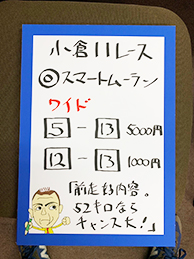 小倉11レース
◎スマートムーラン
ワイド
5-13 5000円
12-13 1000円
「前走好内容。
52キロなら
チャンス大!」